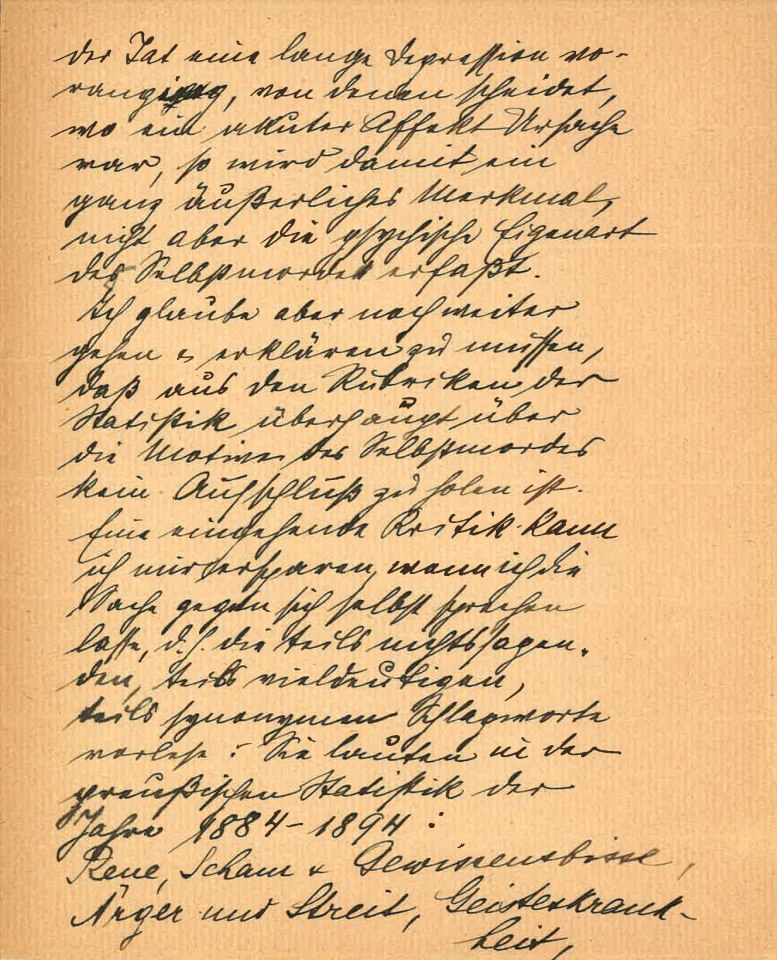 der Tat eine lange Depression vo-
rangieng, von denen scheidet,
wo ein akuter Affekt Ursache
war, so wird damit ein
ganz äußerliches Merkmal,
nicht aber die psychische Eigenart
des Selbstmordes erfaßt.
Ich glaube aber noch weiter
gehen & erklären zu müssen,
daß aus den Rubriken der
Statistik überhaupt über
die Motive des Selbstmordes
kein Aufschluß zu holen ist.
Eine eingehende Kritik kann
ich mir ersparen, wenn ich die
Sache gegen sich selbst sprechen
lasse, d. h. die teils nichtssagen-
den, teils vieldeutigen,
teils synonymen Schlagworte
vorlese: Sie lauten in der
preußischen Statistik der
Jahre 1884-1894:
Reue, Scham & Gewissensbisse,
Ärger und Streit, Geisteskrank-
heit,